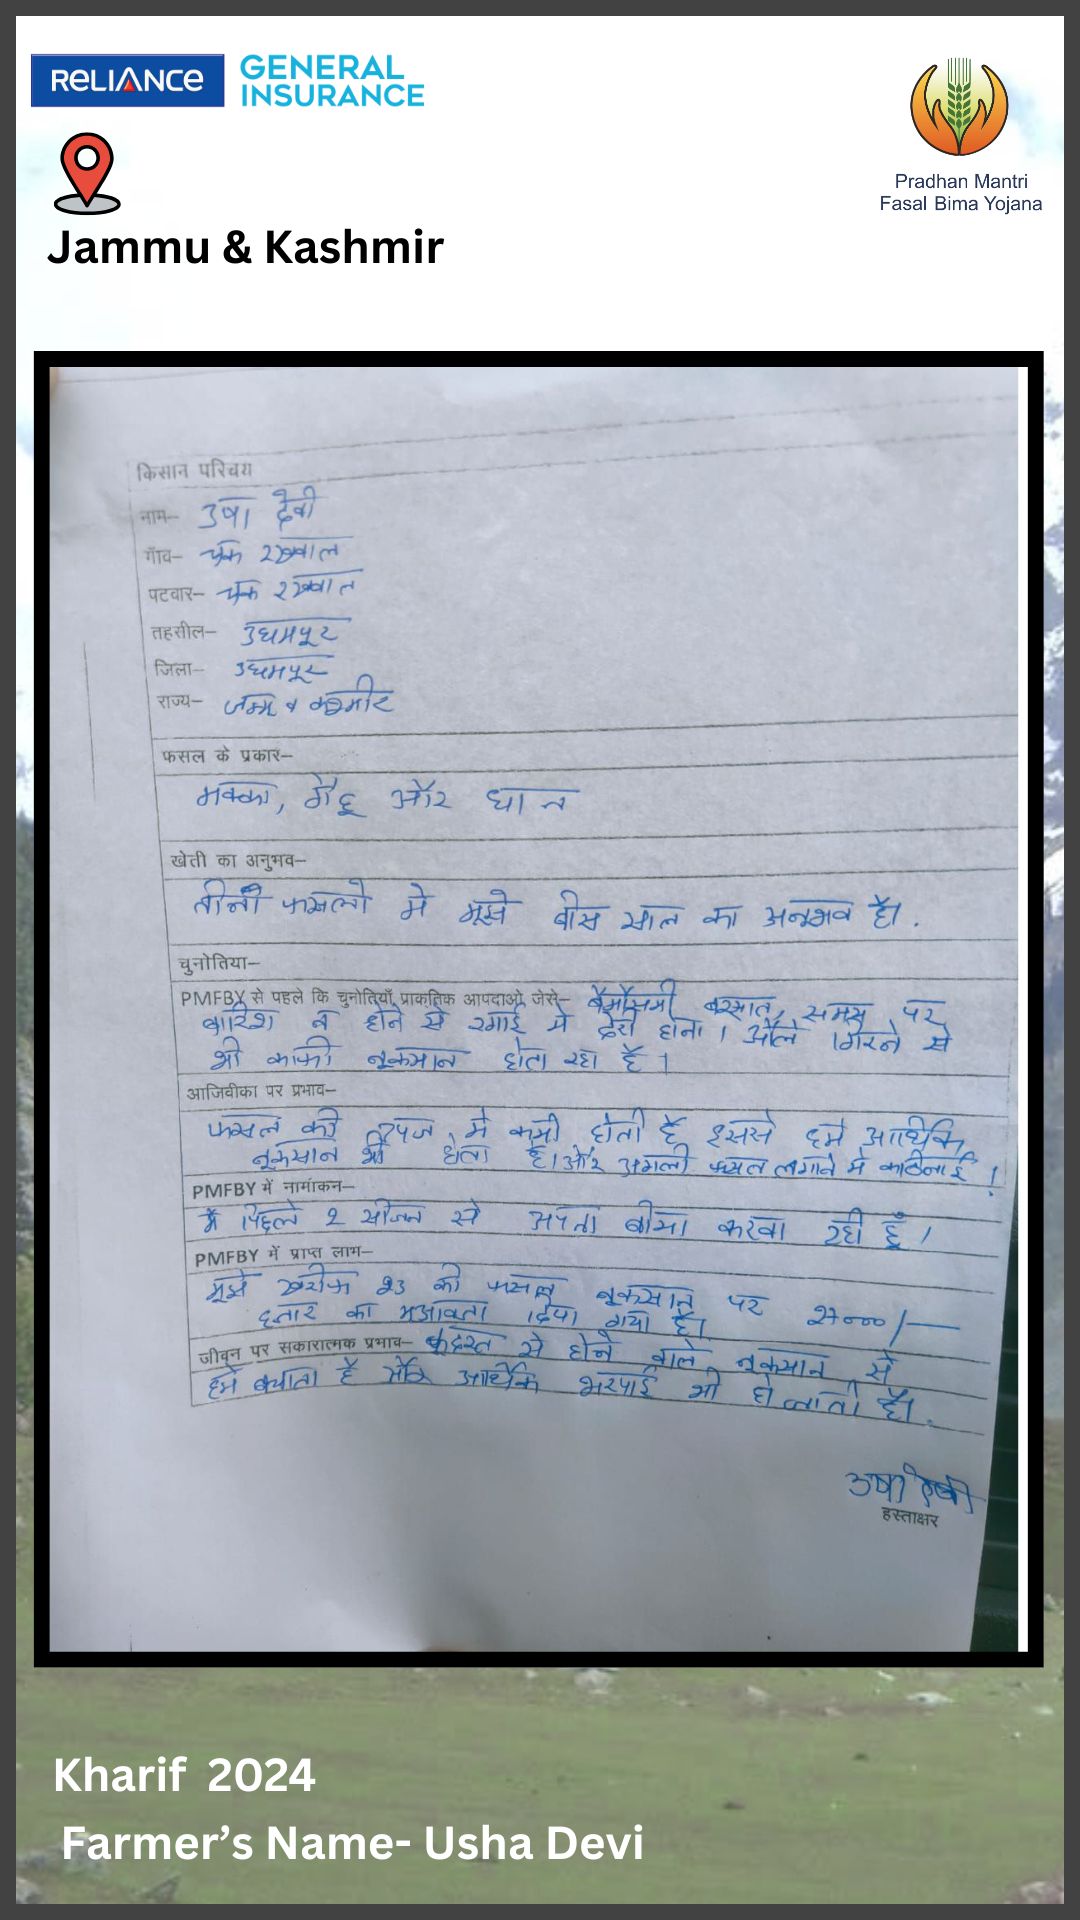 RELIANCE GENERAL INSURANCE
Pradhan Mantri
Fasal Bima Yojana
Jammu & Kashmir
किसान परिचय
नाम– उषा देवी
गॉव– चक रखवाल
पटवार– चक रखवाल
तहसील– उधमपूर
जिला– उधमपूर
राज्य– जम्मू व कश्मीर
फसल के प्रकार–
मक्का, गैहू और धान
खेती का अनुभव–
तीनो फसलो मे मूझे बीस साल का अनूभव है।.
चुनोतिया–
PMFBY से पहले कि चुनोतियॉ प्राकृतिक आपदाओ जेसे– बैमौसमी बरसात, समय पर
बारिश न होने से रगाई मे देरी होना। औले गिरने से
भी काफी नूकसान होता रहा है।
आजिवीका पर प्रभाव–
फसल की उपज मे कमी होती है इससे हमे आर्थिक
नूकसान भी होता है। और अगली फसल लगाने मे कठिनाई।
PMFBY में नामांकन–
मै पिछले 2 सीजन से अपना बीमा करवा रही हूँ।
PMFBY में प्राप्त लाभ–
मूझे खरीफ 23 की फसल नूकसान पर
हजार का मुआवजा दिया गया है।
जीवन पर सकारात्मक प्रभाव– कुदरत से होने वाले नूकसान से
हमे बचाता है और आर्थिक भरपाई भी हो जाती है।.
उषा देवी
हस्ताक्षर
Kharif 2024
Farmer’s Name- Usha Devi